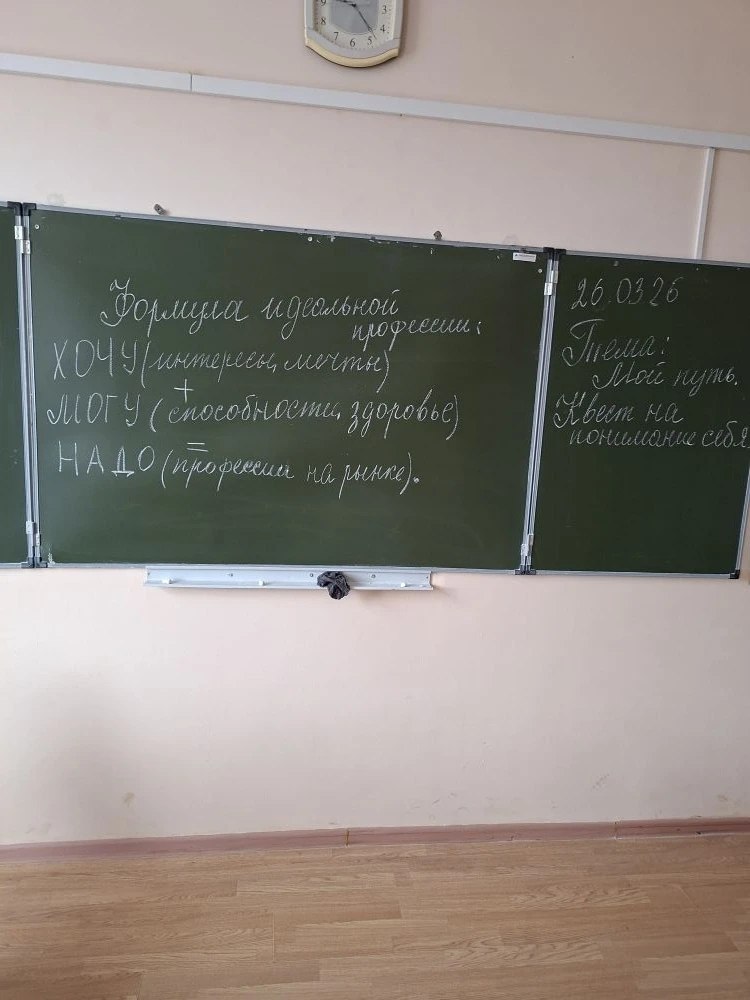 9
8
7
6
5
4
3
Формула идеальной
профессии:
ХОЧУ (интересы, мечты)
+
МОГУ (способности, здоровье)
=
НАДО (профессии на рынке).
26.03 26
Тема:
Мой путь.
Квест на
понимание себя